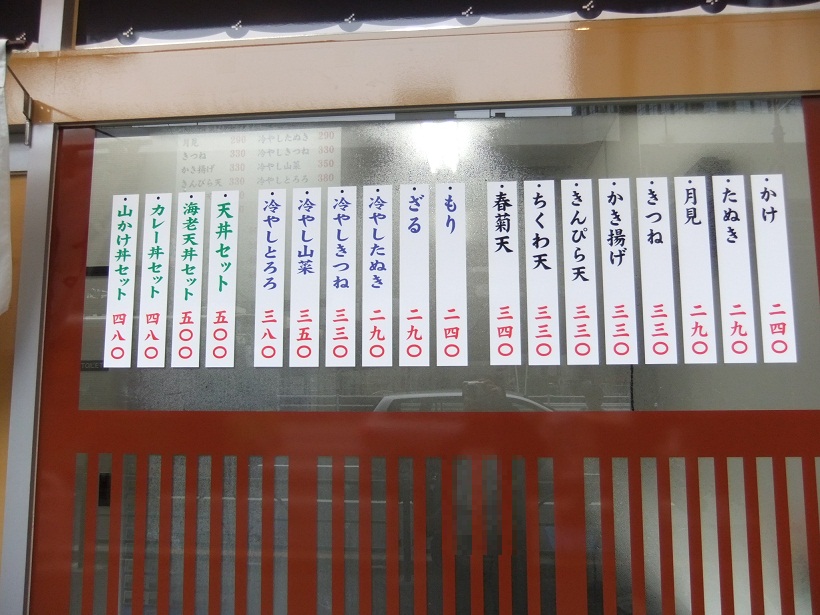 かけ 二四〇
たぬき 二九〇
月見 二九〇
きつね 三三〇
かき揚げ 三三〇
きんぴら天 三三〇
ちくわ天 三三〇
春菊天 三四〇
もり 二四〇
ざる 二九〇
冷やしたぬき 二九〇
冷やしきつね 三三〇
冷やし山菜 三五〇
冷やしとろろ 三八〇
天丼セット 五〇〇
海老天丼セット 五〇〇
カレー丼セット 四八〇
山かけ丼セット 四八〇
月見 290 冷やしたぬき 290
きつね 330 冷やしきつね 330
かき揚げ 330 冷やし山菜 350
きんぴら天 330 冷やしとろろ 380